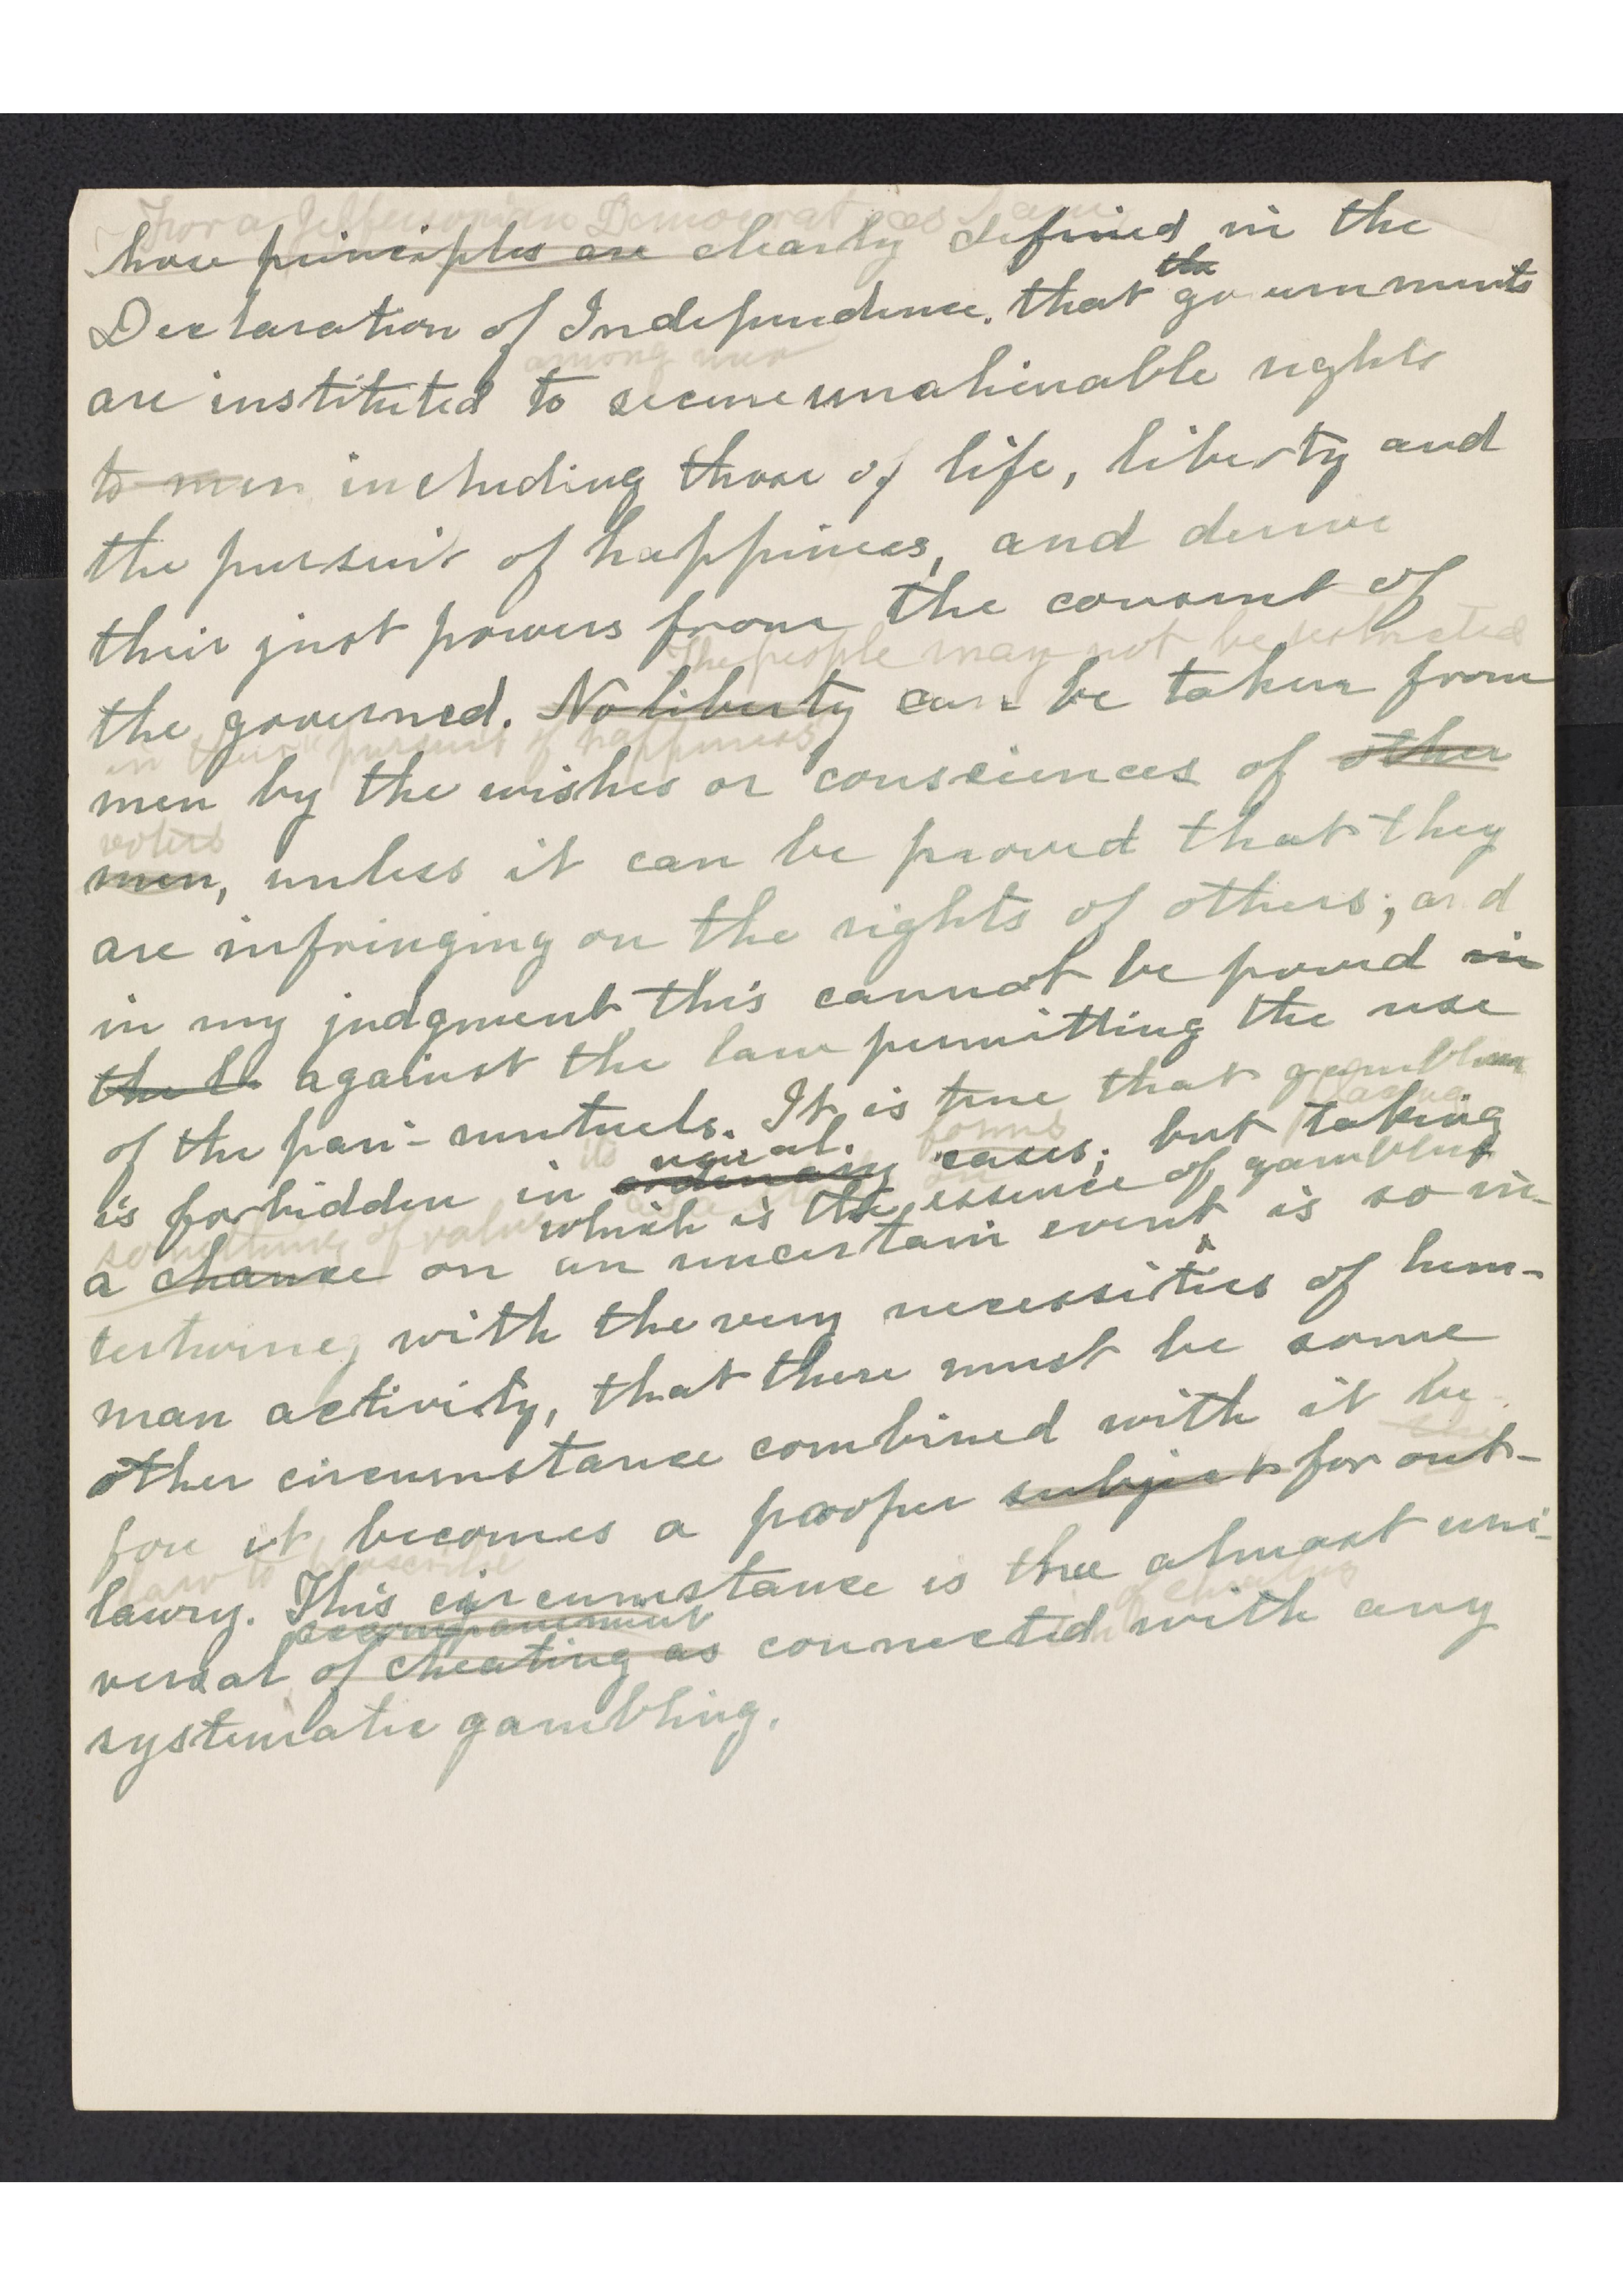 For a Jeffersonian Democrat as I am
whose principles are clearly defined in the
the
Declaration of Independence. that governments
among men
are instituted to secure unalienable rights
to men including those of life, liberty and
the pursuit of happiness, and derive
their just powers from the consent of
The people may not be restricted
the governed. No liberty can be taken from
in their pursuit of happiness
men by the wishes or consciences of other
voters
men, unless it can be proved that they
are infringing on the rights of others; and
in my judgment this cannot be proved in
the la against the law permitting the use
of the pari-mutuels. It is true that gambling
its usual. forms placing
is forbidden in ordinary cases; but taking
something of value which is the essence of gambling
a chance on an uncertain event is so in-
tertwined with the very necessities of hum-
man activity, that there must be some
other circumstance combined with it be-
fore it becomes a proper subject for out-
law to proscribe
lawry. This circumstance is the almost uni-
accompaniment of cheating
versal of cheating as connected with any
systematic gambling.